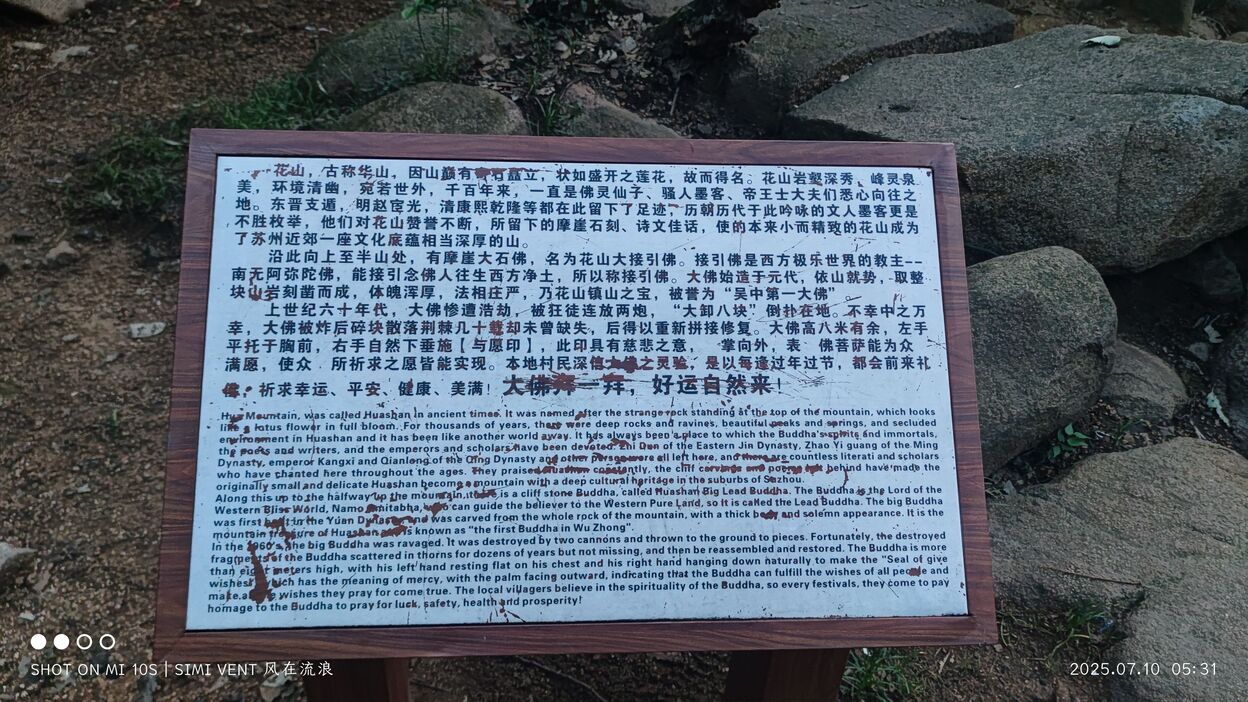 花山，古称华山，因山巅有石矗立，状如盛开之莲花，故而得名。花山岩壑深秀、峰灵泉
美，环境清幽，宛若世外，千百年来，一直是佛灵仙子、骚人墨客、帝王士大夫们悉心向往之
地。东晋支遁，明赵宧光，清康熙乾隆等都在此留下了足迹，历朝历代于此吟咏的文人墨客更是
不胜枚举，他们对花山赞誉不断，所留下的摩崖石刻、诗文佳话，使的本来小而精致的花山成为
了苏州近郊一座文化底蕴相当深厚的山。
沿此向上至半山处，有摩崖大石佛，名为花山大接引佛。接引佛是西方极乐世界的教主--
南无阿弥陀佛，能接引念佛人往生西方净土，所以称接引佛。大佛始造于元代，依山就势，取整
块山岩刻凿而成，体魄浑厚，法相庄严，乃花山镇山之宝，被誉为“吴中第一大佛”。
上世纪六十年代，大佛惨遭浩劫，被狂徒连放两炮，“大卸八块”倒扑在地。不幸中之万
幸，大佛被炸后碎块散落荆棘几十载却未曾缺失，后得以重新拼接修复。大佛高八米有余，左手
平托于胸前，右手自然下垂施【与愿印】，此印具有慈悲之意，掌向外，表佛菩萨能为众
满愿，使众所祈求之愿皆能实现。本地村民深信大佛之灵验，是以每逢过年过节，都会前来礼
佛，祈求幸运、平安、健康、美满！大佛拜一拜，好运自然来！
Hua Mountain, was called Huashan in ancient times. It was named after the strange rock standing at the top of the mountain, which looks
like a lotus flower in full bloom. For thousands of years, there were deep rocks and ravines, beautiful peaks and springs, and secluded
environment in Huashan and it has been like another world away. It has always been a place to which the Buddha's spirits and immortals,
the poets and writers, and the emperors and scholars have been devoted. Zhi Dun of the Eastern Jin Dynasty, Zhao Yi guang of the Ming
Dynasty, emperor Kangxi and Qianlong of the Qing Dynasty and other persons were all left here, and there are countless literati and scholars
who have chanted here throughout the ages. They praised Huashan constantly, the cliff carvings and poems left behind have made the
originally small and delicate Huashan become a mountain with a deep cultural heritage in the suburbs of Suzhou.
Along this up to the halfway up the mountain, there is a cliff stone Buddha, called Huashan Big Lead Buddha. The Buddha is the Lord of the
Western Bliss World, Namo Amitabha, who can guide the believer to the Western Pure Land, so it is called the Lead Buddha. The big Buddha
was first built in the Yuan Dynasty and was carved from the whole rock of the mountain, with a thick body and solemn appearance. It is the
mountain treasure of Huashan and is known as "the first Buddha in Wu Zhong".
In the 1960's, the big Buddha was ravaged. It was destroyed by two cannons and thrown to the ground to pieces. Fortunately, the destroyed
fragments of the Buddha scattered in thorns for dozens of years but not missing, and then be reassembled and restored. The Buddha is more
than eight meters high, with his left hand resting flat on his chest and his right hand hanging down naturally to make the "Seal of give
wishes", which has the meaning of mercy, with the palm facing outward, indicating that the Buddha can fulfill the wishes of all people and
make all the wishes they pray for come true. The local villagers believe in the spirituality of the Buddha, so every festivals, they come to pay
homage to the Buddha to pray for luck, safety, health and prosperity!
SHOT ON MI 10S | SIMI VENT 风在流浪
2025.07.10 05:31